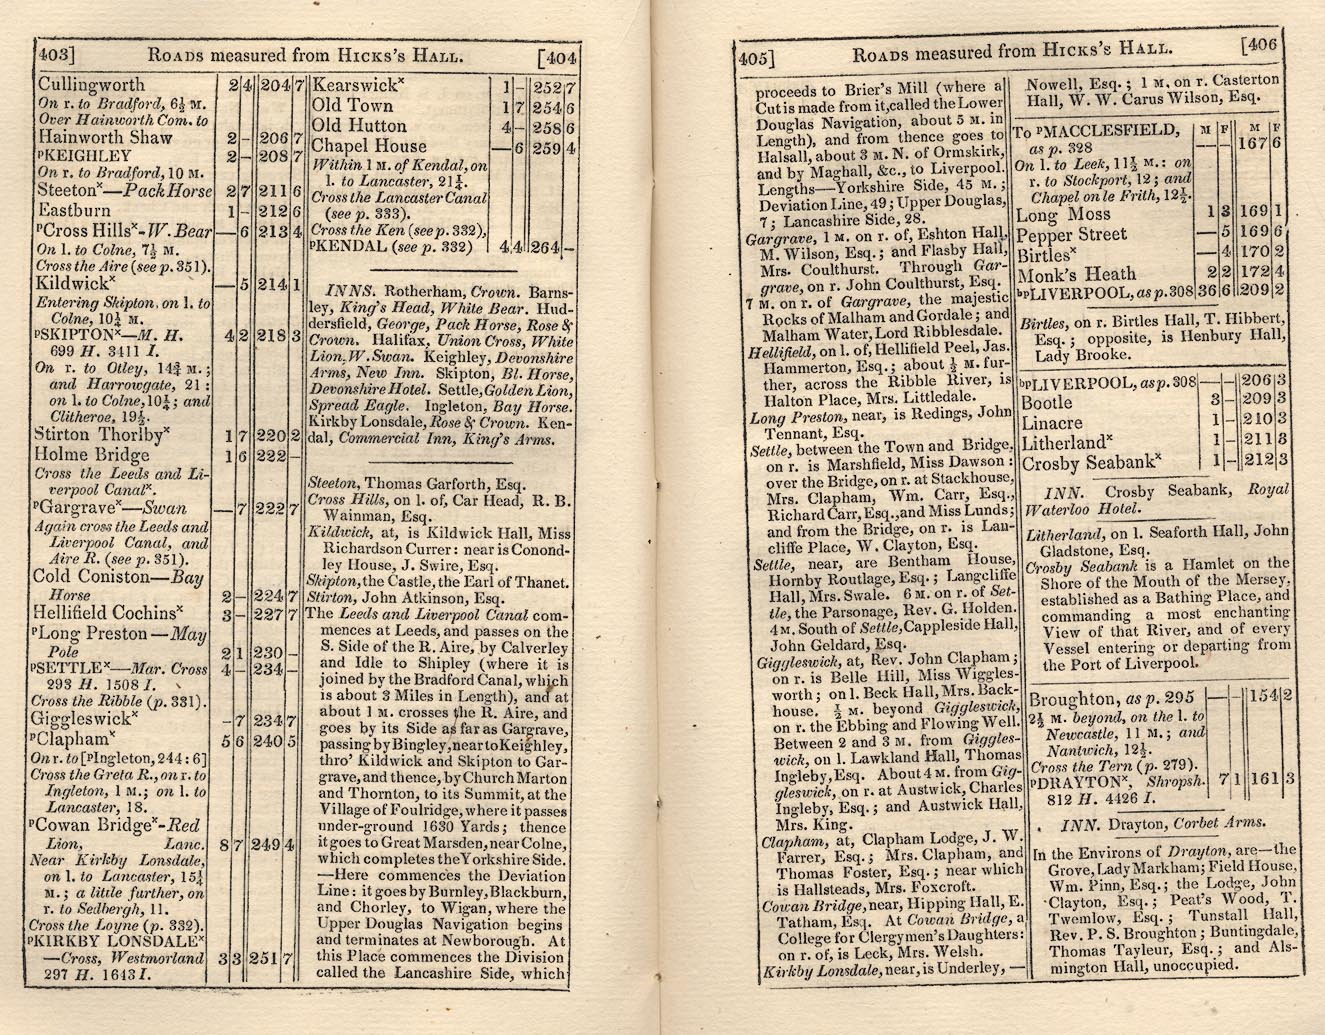 403] ROADS measured from HICKS'S HALL. [404
Cullingworth 2 4 204 7
On r. to Bradford, 6½ M.
Over Hainworth Com. to
Hainworth Shaw 2 – 206 7
ᵖKEIGHLEY 2 – 208 7
On r. to Bradford, 10 M.
Steetonˣ—Pack Horse 2 7 211 6
Eastburn 1 – 212 6
ᵖCross Hillsˣ-W. Bear — 6 213 4
On l. to Colne, 7½ M.
Cross the Aire (see p. 351).
Kildwickˣ — 5 214 1
Entering Skipton, on l. to
Colne, 10¼ M.
ᵖSKIPTONˣ—M. H. 4 2 218 3
699 H. 3411 I.
On r. to Otley, 14¾ M.;
and Harrowgate, 21 :
on l. to Colne, 10¼; and
Clitheroe, 19½.
Stirton Thorlbyˣ 1 7 220 2
Holme Bridge 1 6 222 –
Cross the Leeds and Li-
verpool Canalˣ.
ᵖGargraveˣ—Swan — 7 222 7
Again cross the Leeds and
Liverpool Canal, and
Aire R. (see p. 351).
Cold Coniston—Bay
Horse 2 – 224 7
Hellifield Cochinsˣ 3 – 227 7
ᵖLong Preston—May
Pole 2 1 230 –
ᵖSETTLEˣ—Mar. Cross 4 – 234 –
293 H. 1508 I.
Cross the Ribble (p. 331).
Giggleswickˣ – 7 234 7
ᵖClaphamˣ 5 6 240 5
On r. to [ᵖIngleton, 244 : 6]
Cross the Greta R., on r. to
Ingleton, 1 M.; on l. to
Lancaster, 18.
ᵖCowan Bridgeˣ-Red
Lion, Lanc. 8 7 249 4
Near Kirkby Lonsdale,
on l. to Lancaster, 15¼
M.; a little further, on
r. to Sedbergh, 11.
Cross the Loyne (p. 332).
ᵖKIRKBY LONSDALEˣ
—Cross, Westmorland 3 3 251 7
297 H. 1643 I.
Kearswickˣ 1 – 252 7
Old Town 1 7 254 6
Old Hutton 4 – 258 6
Chapel House — 6 259 4
Within 1 M. of Kendal, on
l. to Lancaster, 21¼.
Cross the Lancaster Canal
(see p. 333).
Cross the Ken (see p. 332),
ᵖKENDAL (see p. 332) 4 4 264 –
INNS. Rotherham, Crown. Barns-
ley, King's Head, White Bear. Hud-
dersfield, George, Pack Horse, Rose &
Crown. Halifax, Union Cross, White
Lion, W. Swan. Keighley, Devonshire
Arms, New Inn. Skipton, Bl. Horse,
Devonshire Hotel. Settle, Golden Lion,
Spread Eagle. Ingleton, Bay Horse.
Kirkby Lonsdale, Rose & Crown. Ken-
dal, Commercial Inn, King's Arms.
Steeton, Thomas Garforth, Esq.
Cross Hills, on l. of, Car Head, R. B.
Wainman, Esq.
Kildwick, at, is Kildwick Hall, Miss
Richardson Currer: near is Conond-
ley House, J. Swire, Esq.
Skipton, the Castle, the Earl of Thanet.
Stirton, John Atkinson, Esq.
The Leeds and Liverpool Canal com-
mences at Leeds, and passes on the
S. Side of the R. Aire, by Calverley
and Idle to Shipley (where it is
joined by the Bradford Canal, which
is about 3 Miles in Length), and at
about 1 M. crosses the R. Aire, and
goes by its Side as far as Gargrave,
passing by Bingley, near to Keighley,
thro' Kildwick and Skipton to Gar-
grave, and thence, by Church Marton
and Thornton, to its Summit, at the
Village of Foulridge, where it passes
under-ground 1630 Yards; thence
it goes to Great Marsden, near Colne,
which completes the Yorkshire Side.
—Here commences the Deviation
Line: it goes by Burnley, Blackburn,
and Chorley, to Wigan, where the
Upper Douglas Navigation begins
and terminates at Newborough. At
this Place commences the Division
called the Lancashire Side, which
405] ROADS measured from HICKS'S HALL. [406
proceeds to Brier's Mill (where a
Cut is made from it, called the Lower
Douglas Navigation, about 5 M. in
Length), and from thence goes to
Halsall, about 3 M. N. of Ormskirk,
and by Maghall, &c., to Liverpool.
Lengths—Yorkshire Side, 45 M.;
Deviation Line, 49; Upper Douglas,
7; Lancashire Side, 28.
Gargrave, 1 M. on r. of, Eshton Hall,
M. Wilson, Esq.; and Flasby Hall,
Mrs. Coulthurst. Through Gar-
grave, on r. John Coulthurst, Esq.
7 M. on r. of Gargrave, the majestic
Rocks of Malham and Gordale; and
Malham Water, Lord Ribblesdale.
Hellifield, on l. of, Hellifield Peel, Jas.
Hammerton, Esq.; about ½ M. fur-
ther, across the Ribble River, is
Halton Place, Mrs. Littledale.
Long Preston, near, is Redings, John
Tennant, Esq.
Settle, between the Town and Bridge,
on r. is Marshfield, Miss Dawson:
over the Bridge, on r. at Stackhouse,
Mrs. Clapham, Wm. Carr, Esq.,
Richard Carr, Esq., and Miss Lunds;
and from the Bridge, on r. is Lan-
cliffe Place, W. Clayton, Esq.
Settle, near, are Bentham House,
Hornby Routlage, Esq.; Langcliffe
Hall, Mrs. Swale. 6 M. on r. of Set-
tle, the Parsonage, Rev. G. Holden.
4 M. South of Settle, Cappleside Hall,
John Geldard, Esq.
Giggleswick, at, Rev. John Clapham;
on r. is Belle Hill, Miss Wiggles-
worth; on l. Beck Hall, Mrs. Back-
house. ½ M. beyond Giggleswick,
on r. the Ebbing and Flowing Well.
Between 2 and 3 M. from Giggles-
wick, on l. Lawkland Hall, Thomas
Ingleby, Esq. About 4 M. from Gig-
gleswick, on r. at Austwick, Charles
Ingleby, Esq.; and Austwick Hall,
Mrs. King.
Clapham, at, Clapham Lodge, J. W.
Farrer, Esq.; Mrs. Clapham, and
Thomas Foster, Esq.; near which
is Hallsteads, Mrs. Foxcroft.
Cowan Bridge, near, Hipping Hall, E.
Tatham, Esq. At Cowan Bridge, a
College for Clergymen's Daughters:
on r. of, is Leck, Mrs. Welsh.
Kirkby Lonsdale, near, is Underley, —
Nowell, Esq.; 1 M. on r. Casterton
Hall, W. W. Carus Wilson, Esq.
To ᵖMACCLESFIELD, M F M F
as p. 328 — – 167 6
On l. to Leek, 11½ M.: on
r. to Stockport, 12; and
Chapel en le Frith, 12½.
Long Moss 1 3 169 1
Pepper Street — 5 169 6
Birtlesˣ — 4 170 2
Monk's Heath 2 2 172 4
ᵇᵖLIVERPOOL, as p. 308 36 6 209 2
Birtles, on r. Birtles Hall, T. Hibbert,
Esq.; opposite, is Henbury Hall,
Lady Brooke.
ᵇᵖLIVERPOOL, as p. 308 — – 206 3
Bootle 3 – 209 3
Linacre 1 – 210 3
Litherlandˣ 1 – 211 3
Crosby Seabankˣ 1 – 212 3
INN. Crosby Seabank, Royal
Waterloo Hotel.
Litherland, on l. Seaforth Hall, John
Gladstone, Esq.
Crosby Seabank is a Hamlet on the
Shore of the Mouth of the Mersey,
established as a Bathing Place, and
commanding a most enchanting
View of that River, and of every
Vessel entering or departing from
the Port of Liverpool.
Broughton, as p. 295 — – 154 2
2½ M. beyond, on the l. to
Newcastle, 11 M.; and
Nantwich, 12½.
Cross the Tern (p. 279).
ᵖDRAYTONˣ, Shropsh. 7 1 161 3
812 H. 4426 I.
INN. Drayton, Corbet Arms.
In the Environs of Drayton, are—the
Grove, Lady Markham; Field House,
Wm. Pinn, Esq.; the Lodge, John
Clayton, Esq.; Peat's Wood, T.
Twemlow, Esq.; Tunstall Hall,
Rev. P. S. Broughton; Buntingdale,
Thomas Tayleur, Esq.; and Als-
mington Hall, unoccupied.